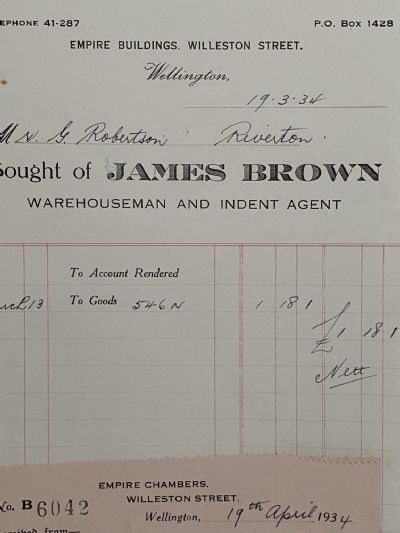 EPHONE 41-287 P.O. Box 1428
EMPIRE BUILDINGS, WILLESTON STREET.
Wellington,
19.3.34
Mr. G. Robertson. Riverton.
ought of JAMES BROWN
WAREHOUSEMAN AND INDENT AGENT
To Account Rendered
rch 13 To Goods 546 N 1 18 1
£1 18 1
Nett
EMPIRE CHAMBERS,
WILLESTON STREET,
No. B 6042 Wellington, 19th April, 1934